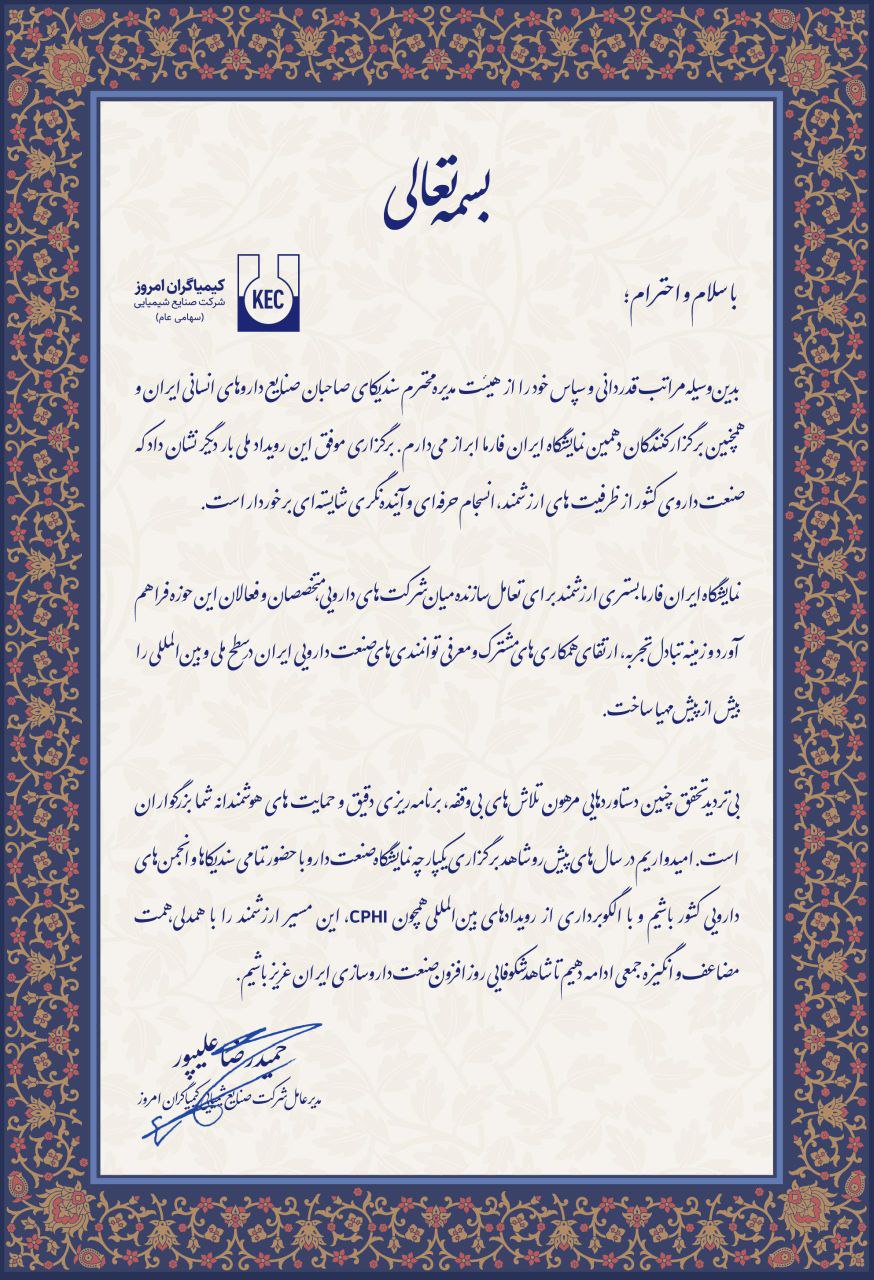 بسمه تعالی
با سلام و احترام؛
KEC
کیمیاگران امروز
شرکت صنایع شیمیایی
(سهامی عام)
بدین وسیله مراتب قدردانی و سپاس خود را از هیئت مدیره محترم سندیکای صاحبان صنایع داروهای انسانی ایران و
همچنین برگزارکنندگان دهمین نمایشگاه ایران فارما ابراز می‌دارم. برگزاری موفق این رویداد ملی بار دیگر نشان داد که
صنعت داروی کشور از ظرفیت های ارزشمند، انسجام حرفه‌ای و آینده‌نگری شایسته‌ای برخوردار است.
نمایشگاه ایران فارما بستری ارزشمند برای تعامل سازنده میان شرکت های دارویی، متخصصان و فعالان این حوزه فراهم
آورد و زمینه تبادل تجربه، ارتقای همکاری‌های مشترک و معرفی توانمندی های صنعت دارویی ایران در سطح ملی و بین المللی را
بیش از پیش مهیا ساخت.
بی‌تردید تحقق چنین دستاوردهایی مرهون تلاش های بی‌وقفه، برنامه‌ریزی دقیق و حمایت های هوشمندانه شما بزرگواران
است. امیدواریم در سال‌های پیش رو شاهد برگزاری یکپارچه نمایشگاه صنعت دارو با حضور تمامی سندیکاها و انجمن های
دارویی کشور باشیم و با الگوبرداری از رویدادهای بین المللی همچون CPHI، این مسیر ارزشمند را با همدلی، همت
مضاعف و انگیزه جمعی ادامه دهیم تا شاهد شکوفایی روز افزون صنعت داروسازی ایران عزیز باشیم.
حمیدرضا علیپور
مدیرعامل شرکت صنایع شیمیایی کیمیاگران امروز